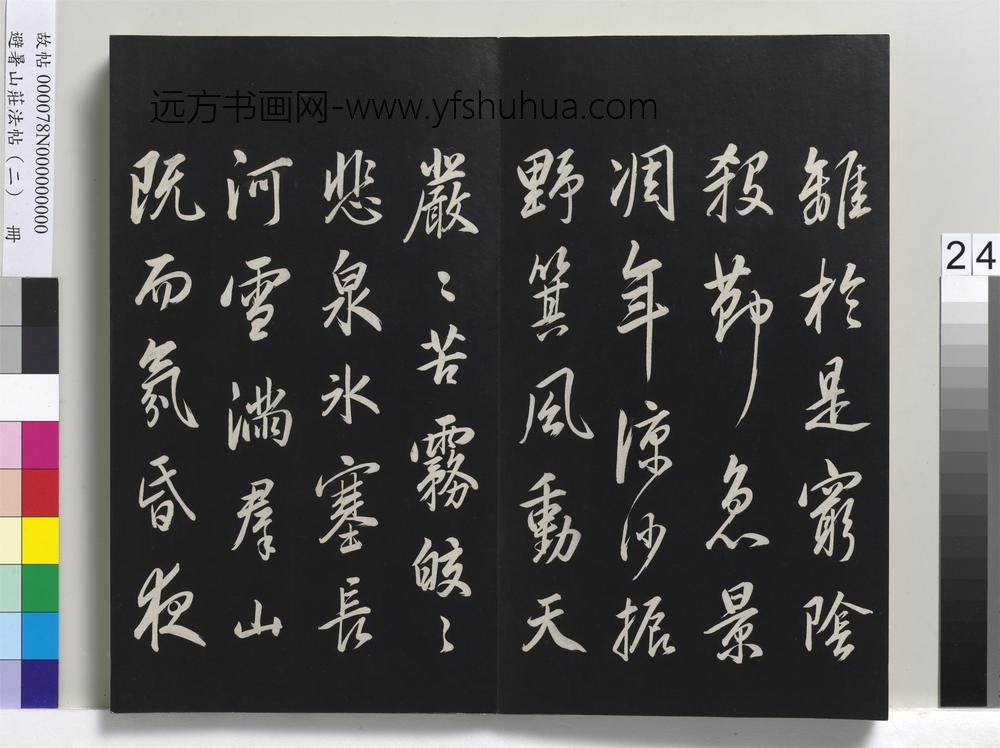 离方书画网-www.yfshuhua.com
離於是窮陰
殺節急景
凋年涼沙振
野箕風動天
嚴〻苦霧皎〻
悲泉氷塞長
河雪滿羣山
既而氛昏夜
故帖 000078N000000000
避暑山莊法帖(二) 冊
24